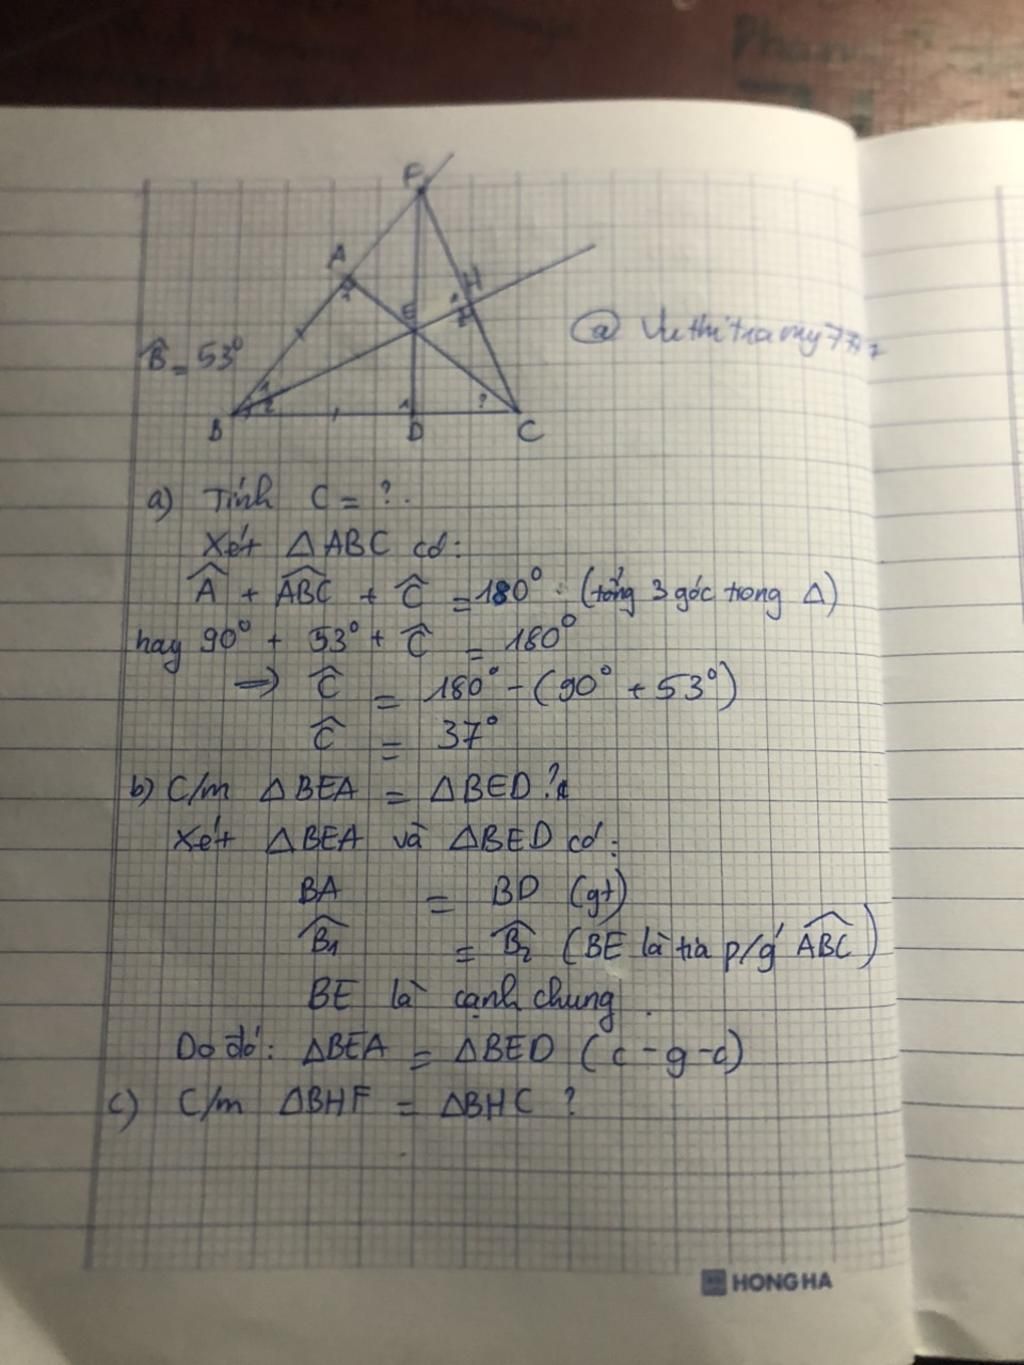 F
A
H
E
B̂ = 53°
1
2
1
?
B
D
C
a) Tính C = ?.
Xét △ABC có:
Â + ABC + Ĉ = 180° (tổng 3 góc trong △)
hay 90° + 53° + Ĉ = 180°
=> Ĉ = 180° - (90° + 53°)
Ĉ = 37°
b) C/m △BEA = △BED ?
Xét △BEA và △BED có:
BA = BD (gt)
B̂1 = B̂2 (BE là tia p/g ABC)
BE là cạnh chung.
Do đó: △BEA = △BED (c-g-c)
c) C/m △BHF = △BHC ?
HONG HA